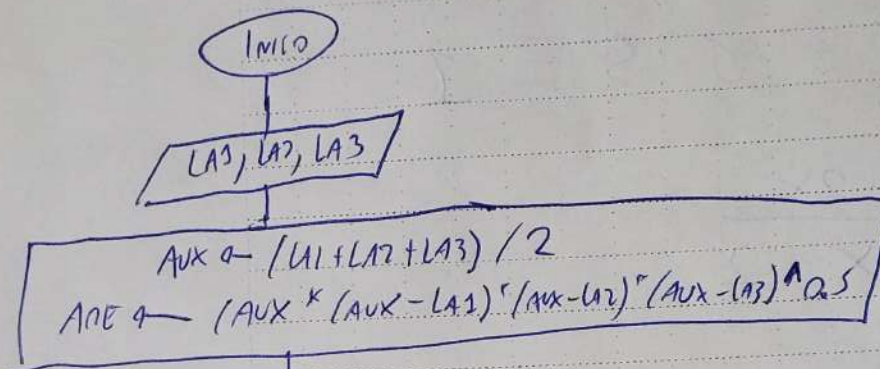 INICO
LA1, LA2, LA3
AUX ← (LA1+LA2+LA3) / 2
ARE ← (AUX * (AUX - LA1) * (AUX - LA2) * (AUX - LA3) ^ 0.5